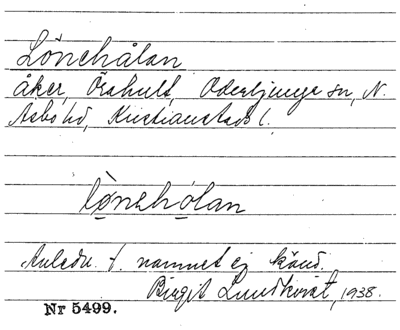 Lönehålan
åker, Örahult, Oderljunga sn, N.
Åsbo hd, Kristianstads l.
lönehòlan
Anledn. t. namnet ej känd.
Birgit Lundkvist, 1938.
Nr 5499.